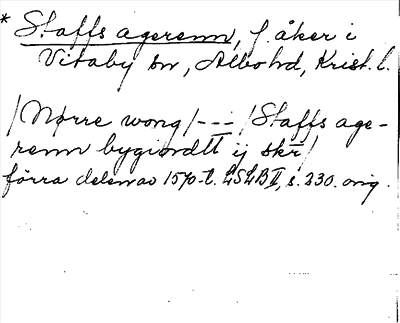 * Staffs agerenn, f. åker i
Vitaby sn, Albo hd, Krist. l.
/Nørre wong/---/Staffs age-
renn bygiordtt ij skr̄/
förra delen av 1570-t. LSLB II, s. 330. orig.